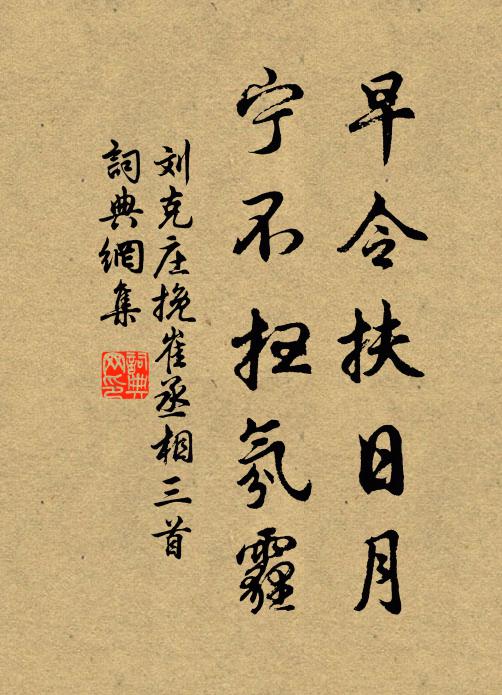 早令扶日月
宁不扫氛霾
刘克庄挽崔丞相三首
詞典網集
詞典网印